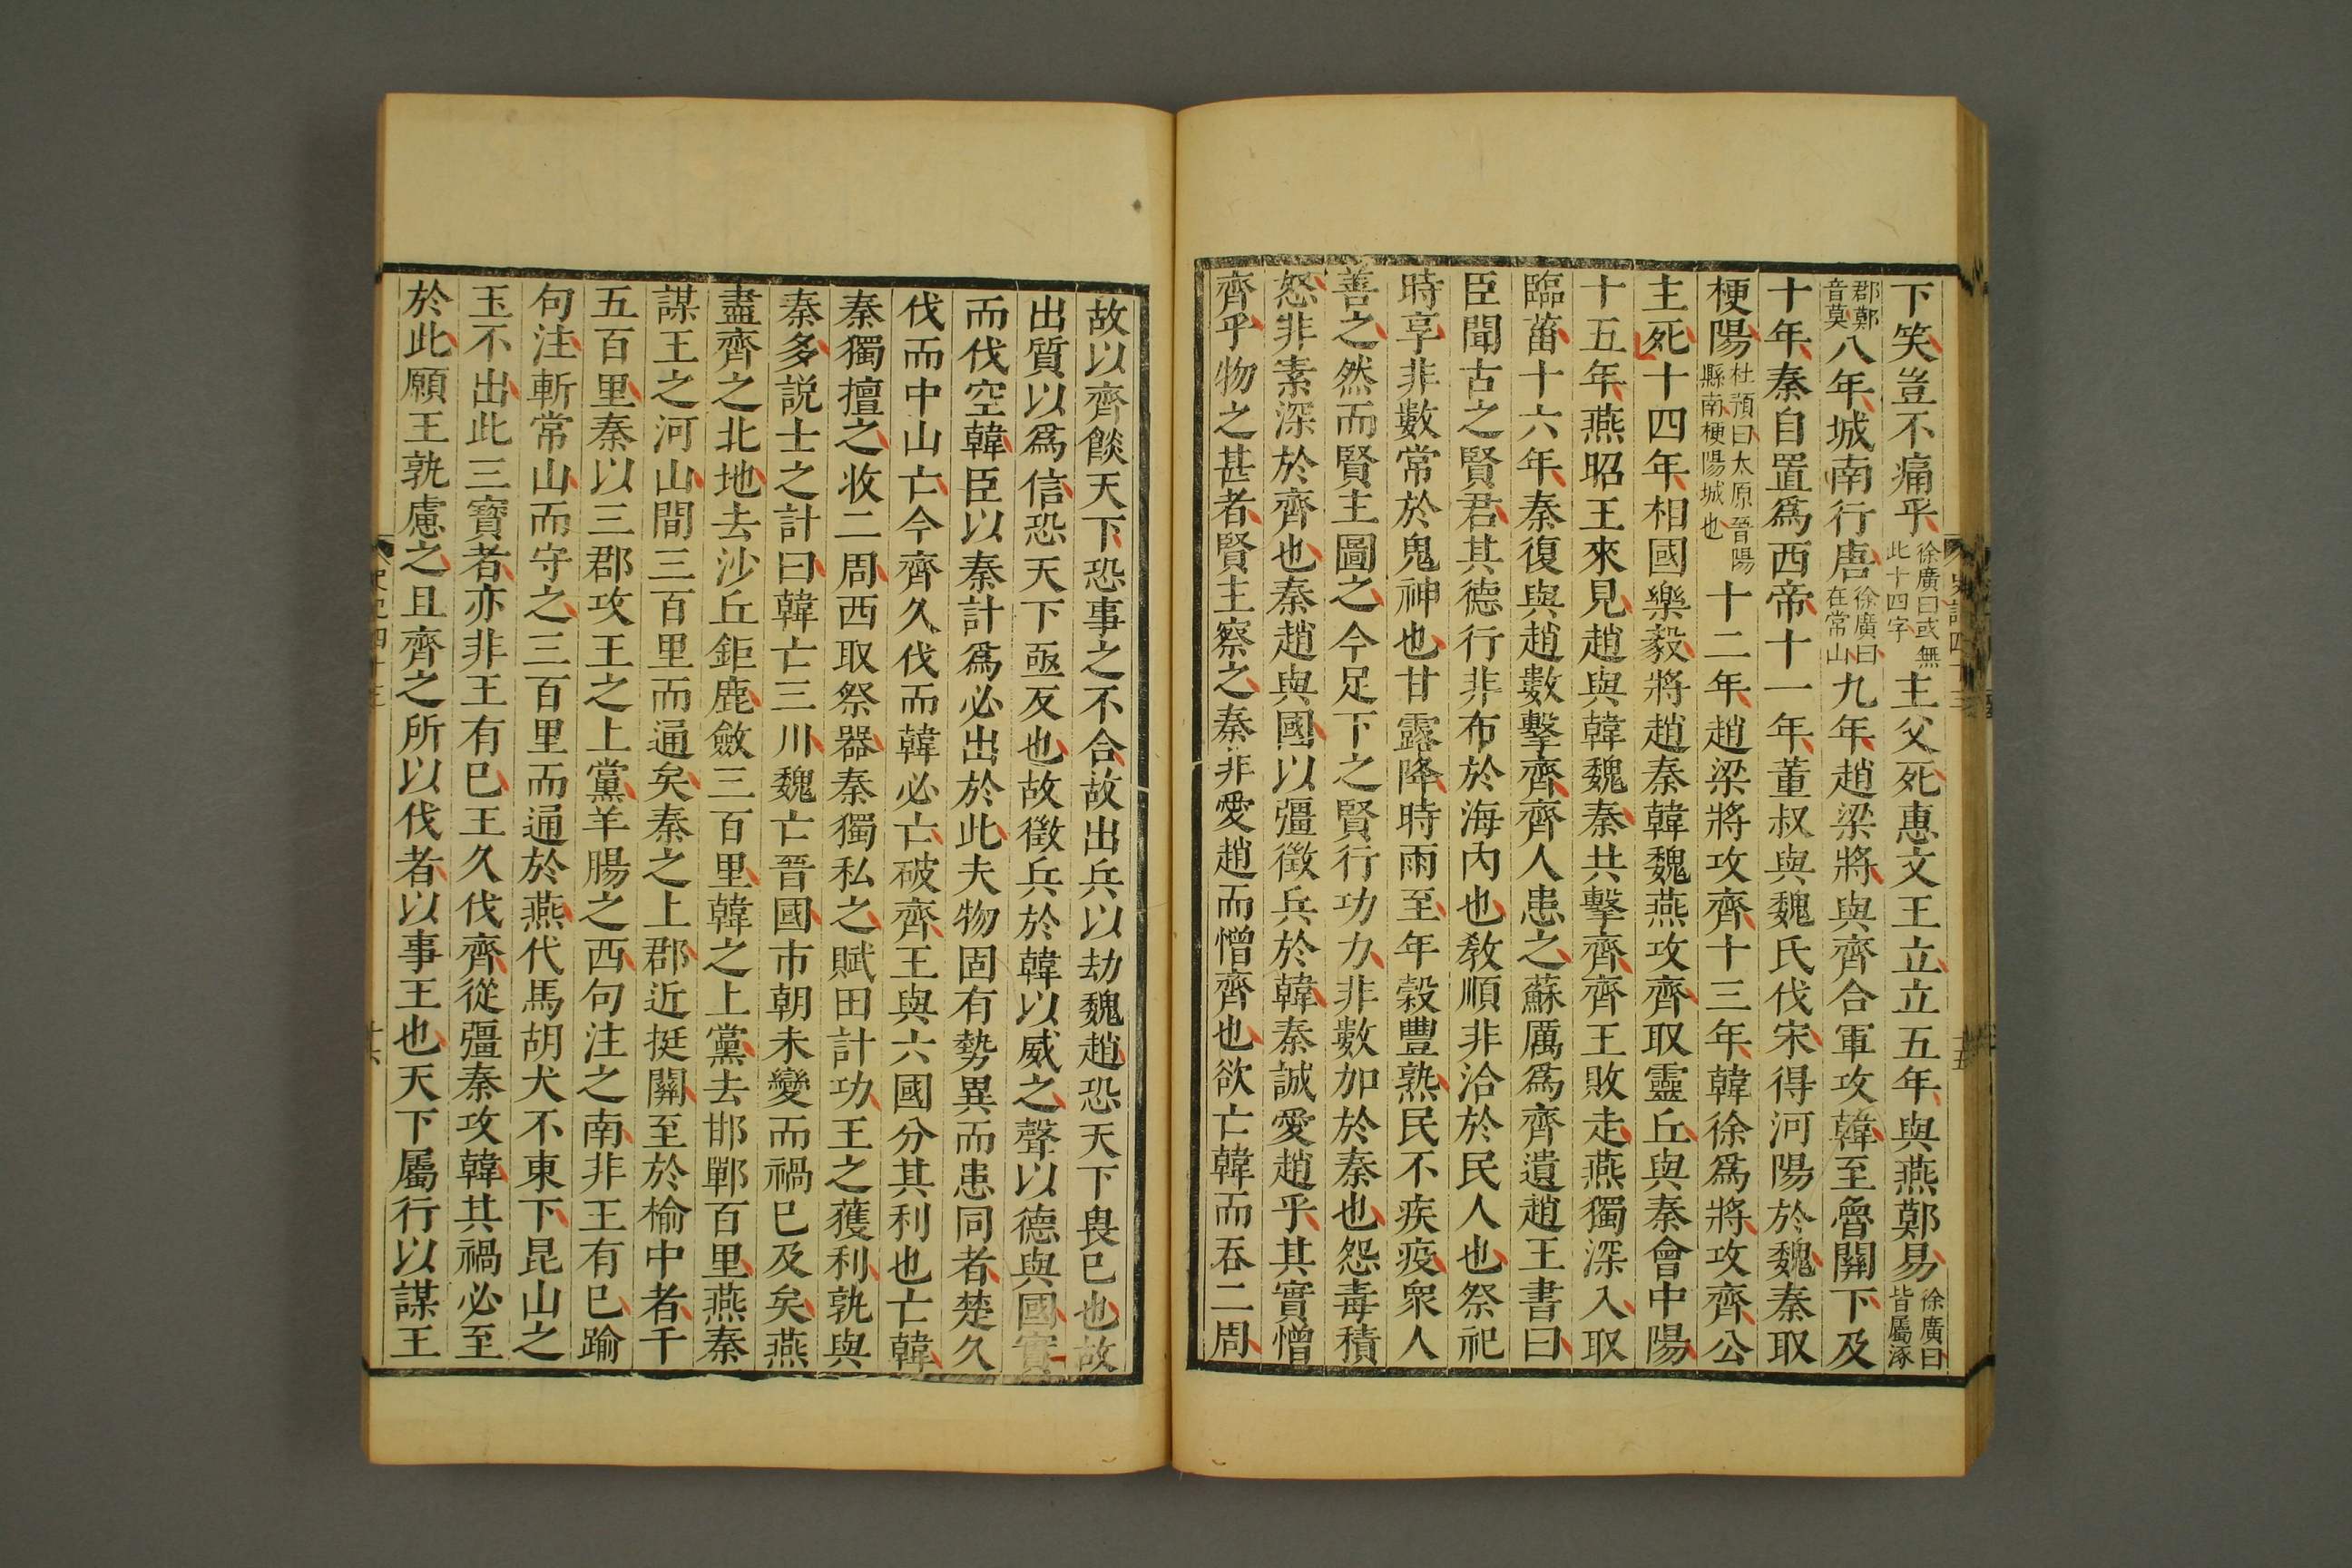 下笑豈不痛乎徐廣曰或無此十四字主父死惠文王立立五年與燕鄭易徐廣曰皆屬涿
郡鄭音莫八年城南行唐徐廣曰在常山九年趙梁將與齊合軍攻韓至魯關下及
十年秦自置爲西帝十一年董叔與魏氏伐宋得河陽於魏秦取
梗陽杜預曰太原晉陽縣南梗陽城也十二年趙梁將攻齊十三年韓徐爲將攻齊公
主死十四年相國樂毅將趙秦韓魏燕攻齊取靈丘與秦會中陽
十五年燕昭王來見趙與韓魏秦共擊齊齊王敗走燕獨深入取
臨菑十六年秦復與趙數擊齊齊人患之蘇厲爲齊遺趙王書曰
臣聞古之賢君其德行非布於海內也敎順非洽於民人也祭祀
時享非數常於鬼神也甘露降時雨至年穀豐熟民不疾疫衆人
善之然而賢主圖之今足下之賢行功力非數加於秦也怨毒積
怒非素深於齊也秦趙與國以彊徵兵於韓秦誠愛趙乎其實憎
齊乎物之甚者賢主察之秦非愛趙而憎齊也欲亡韓而吞二周
故以齊餤天下恐事之不合故出兵以劫魏趙恐天下畏已也故
出質以爲信恐天下亟反也故徵兵於韓以威之聲以德與國實
而伐空韓臣以秦計爲必出於此夫物固有勢異而患同者楚久
伐而中山亡今齊久伐而韓必亡破齊王與六國分其利也亡韓
秦獨擅之收二周西取祭器秦獨私之賦田計功王之獲利孰與
秦多説士之計曰韓亡三川魏亡晉國市朝未變而禍已及矣燕
盡齊之北地去沙丘鉅鹿斂三百里韓之上黨去邯鄲百里燕秦
謀王之河山間三百里而通矣秦之上郡近挺關至於榆中者千
五百里秦以三郡攻王之上黨羊腸之西句注之南非王有已踰
句注斬常山而守之三百里而通於燕代馬胡犬不東下昆山之
玉不出此三寶者亦非王有已王久伐齊從彊秦攻韓其禍必至
於此願王孰慮之且齊之所以伐者以事王也天下屬行以謀王